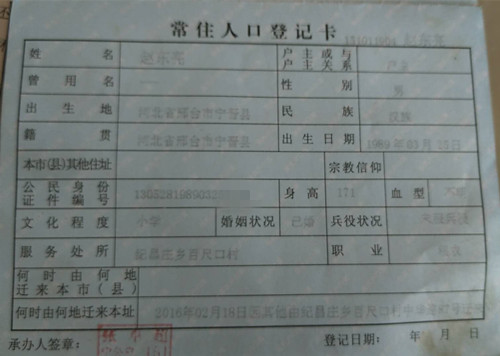 常住人口登记卡
姓名 赵东亮 户主或与户主关系 户主
曾用名 性别 男
出生地 河北省邢台市宁晋县 民族 汉族
籍贯 河北省邢台市宁晋县 出生日期 1989年03月25日
本市(县)其他住址 宗教信仰
公民身份证件编号 身高 171 血型 不明
文化程度 小学 婚姻状况 已婚 兵役状况 未服兵役
服务处所 纪昌庄乡百尺口村 职业
何时由何地迁来本市(县)
何时由何地迁来本址 2016年02月18日因其他由纪昌庄乡百尺口村
承办人签章: 登记日期: 年 月 日